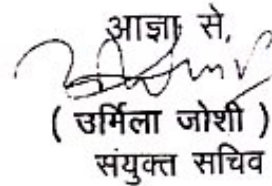 आज्ञा से,
( उर्मिला जोशी )
संयुक्त सचिव